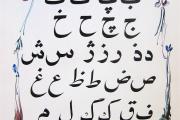 ج چ ح خ
د ذ ر ز ژ س ش
ص ض ط ظ ع غ
ف ق ک گ ل م